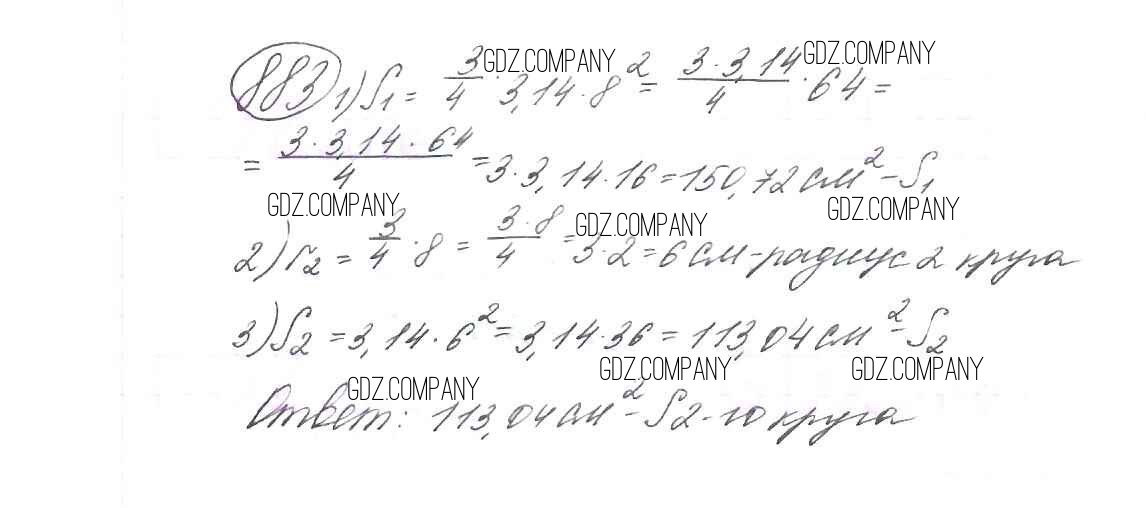 883 1) S₁ = 3/4 · 3,14 · 8² = 3 · 3,14/4 · 64 =
= 3 · 3,14 · 64/4 = 3 · 3,14 · 16 = 150,72 см² – S₁
2) r₂ = 3/4 · 8 = 3 · 8/4 = 3 · 2 = 6 см – радиус 2 круга
3) S₂ = 3,14 · 6² = 3,14 · 36 = 113,04 см² – S₂
Ответ: 113,04 см² – S 2-го круга
GDZ.COMPANY GDZ.COMPANY
GDZ.COMPANY GDZ.COMPANY GDZ.COMPANY
GDZ.COMPANY GDZ.COMPANY GDZ.COMPANY